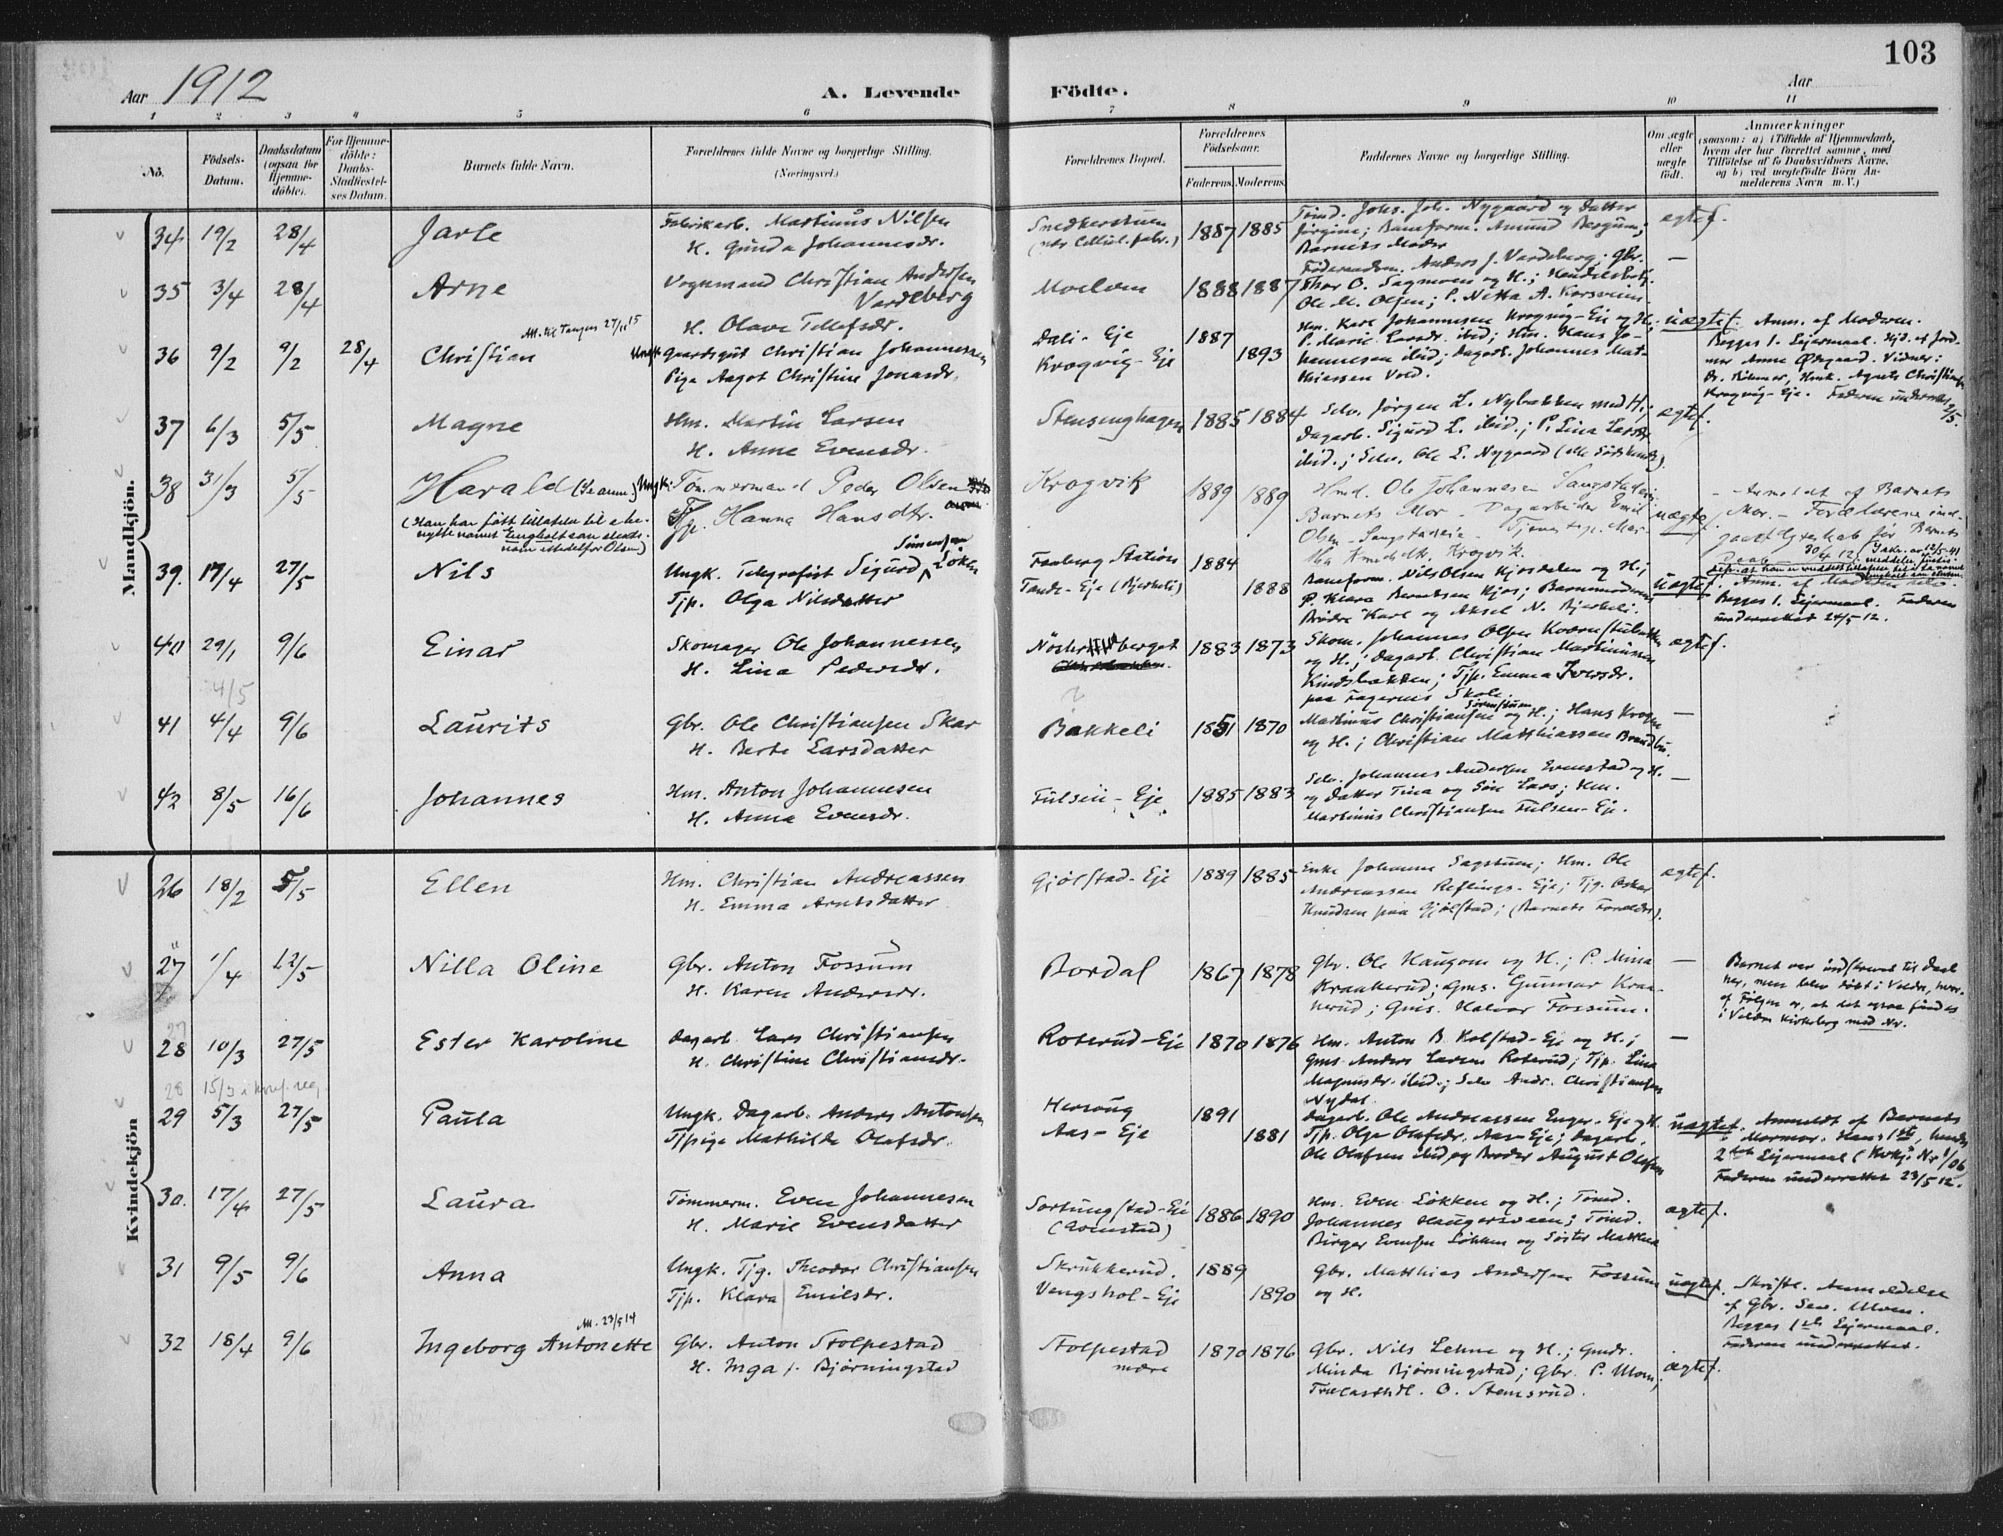 103
Aar 1912
A. Levende
Födte.
Aar
1 2 3 4 5 6 7 8 9 10 11
No.
Födsels-
Datum.
Daabsdatum
(ogsaa for
Hjemme-
döbte).
For Hjemme-
döbte:
Daabs-
Stadfæstel-
ses Datum.
Barnets fulde Navn.
Forældrenes fulde Navne og borgerlige Stilling.
(Næringsvei.)
Forældrenes Bopæl.
Forældrenes
Födselsaar.
Faderens. Moderens.
Faddernes Navne og borgerlige Stilling.
Om ægte
eller
uægte
født.
Anmærkninger
(saasom: a) i Tilfælde af Hjemmedaab,
hvem der har forrettet samme, med
Tilföielse af to Daabsvidners Navne,
og b) ved uægtefödte Börn An-
melderens Navn m. V.)
Mandkjön.
34 19/2 28/4 Jarle
Fabrikarb. Martinus Nilsen
H. Gunda Johannesdr.
Snedkerstuen
1887 1885
Tömd. Johs. Joh. Nygaard og Datter
Jørgine; Baneform. Amund Bergum;
Barnets Moder
ægtef.
35 3/4 28/4 Arne
Vognmand Christian Andersen
Vardeberg
H. Olave Tellefsdr.
Moelven
1888 1887
Föderaadsm. Anders J. Vardeberg; Gbr.
Thor O. Sagmoen og H.; Handelsbetj.
Ole M. Olsen; P. Netta A. Korsveien
—
36 9/2 9/2 28/4
Att. til Tangen 27/11 15
Christian
Ungk. Gaardsgut Christian Johannessen
Pige Aagot Christine Jonasdr.
Dali-Eje
Krogvig-Eje
1887
1893
Hm. Karl Johannesen Krogvig-Eie og H.;
P. Marie Larsdr. ibid; Hm. Hans Jo-
hannesen ibid; Dagarb. Johannes Mat-
hiassen Vold.
uægtef. Anm. af Moderen.
Begges 1. Leiermaal. Hjd. af Jord-
mor Anne Østgaard. Vidner:
Krogvig-Eje. Faderen underrettet
2/5.
37 6/3 5/5 Magne
Hm. Martin Larsen
H. Anne Evensdr.
Stensinghagen
1885 1884
Selv. Jørgen L. Nybakken med H.;
Dagarb. Sigurd L. ibid.; P. Lina Larsdr.
ibid.; Selv. Ole L. Nygaard
ægtef.
38 31/3 5/5 Harald
(Han har fått tillatelse til å be-
nytte navnet Engholt som slekts-
navn istedetfor Olsen)
Ungk. Tømmermand Peder Olsen
Tjp. Hanna Hansdtr.
Krogvik
1889 1889
Hmd. Ole Johannesen Sangstadeie
Barnets Mor - Dagarbeider Emil
Olsen - Sangstadeie - Tjenestpge. Mar-
tha Amundsdtr. Krogvik.
uægte
- Anmeldt af Barnets
Mor. - Forældrene ind-
gaaet Egteskab før Barnets
Daab
39. 17/4 27/5 Nils
Ungk. Telegrafist Sigurd Simensen Løken
Tjp. Olga Nilsdatter
Faaberg Station
Tande-Eje (Bjerkeli)
1884
1888
Baneform. Nils Olsen Kjosdalen og H;
P. Klara Berntsen Kjos; Barnemoderens
Brødre Karl og Aksel N. Bjerkeli.
uægtef. Anm. af Moderen selv.
Begges 1. Leiermaal. Faderen
underrettet 24/5 12.
40 29/1 9/6 Einar
Skomager Ole Johannessen
H. Lina Pedersdr.
1883 1873
Skom. Johannes Olsen Kværnstubakken
og H.; Dagarb. Christian Martiniussen
Kindsbakken; Tjp. Emma Iversdr.
paa Fagernes Skole.
ægtef.
4/5
41 4/4 9/6 Laurits
Gbr. Ole Christiansen Skar
H. Berte Larsdatter
Bakkeli
1851 1870
Martinus Christiansen og H.; Hans Krogen
og H.; Christian Matthiassen Brandbu.
—
42 8/5 16/6 Johannes
Hm. Anton Johannesen
H. Anna Evensdr.
Fulsen-Eje
1885 1883
Selv. Johannes Andersen Evenstad og H.
og Datter Tina og Søn Lars; Hm.
Martinus Christiansen Fulsen-Eje.
—
Kvindekjön
26 18/2 5/5 Ellen
Hm. Christian Andreassen
H. Emma Arntsdatter
Gjølstad-Eje
1889 1885
Enke Johanne Sagstuen; Hm. Ole
Andreassen Reflings-Eje; Tjg. Oskar
Knudsen paa Gjølstad; (Barnets Forældre).
ægtef.
27 1/4 12/5 Nilla Oline
Gbr. Anton Fossum
H. Karen Andersdr.
Bordal
1867 1878
Gbr. Ole Haugom og H.; P. Mina
Kraakerud; Gms. Gunnar Kraa-
kerud; Gms. Halvor Fossum.
—
Barnet var indskrevet til Daab
her, men blev døbt i Veldre, hvor-
af Følgen er, at det ogsaa findes
i Veldre Kirkebog med Nr.
27
28 10/3 27/5 Ester Karoline
Dagarb. Lars Christiansen
H. Christine Christiansdr.
Roterud-Eje
1870 1876
Hm. Anton B. Kolstad-Eje og H.;
Gms. Anders Larsen Roterud; Tjp. Lina
Magnusdr. ibid.; Selv. Andr. Christiansen
Nydal.
—
28 15/3 i konf. reg.
29 5/3 27/5 Paula
Ungk. Dagarb. Anders Antonsen
Tjpige Mathilde Olafsdr.
Hersoug
Aas-Eje
1891
1881
Dagarb. Ole Andreassen Enger-Eje og H.
Tjp. Olga Olafsdr. Aas-Eje; Dagarb.
Ole Olafsen ibid og Broder August Olafsen
uægtef. Anmeldt af Barnets
Mormor. Hans 1ste, hendes
2det Leiermaal (Kirkj. Nr 1/06
Faderen underrettet 23/5 12.
30. 17/4 27/5 Laura
Tømmerm. Even Johannesen
H. Marie Evensdatter
Sortungstad-Eje
(Evenstad)
1886 1890
Hm. Even Løkken og H.; Tømd.
Johannes Haugersveen; Tømd.
Birger Evensen Løkken og Søster Mathea
ægtef.
31 9/5 9/6 Anna
Ungk. Tjg. Theodor Christiansen
Tjp. Klara Emilsdr.
Skrukkerud.
Vengshol-Eje
1889
1890
Gbr. Matthias Andersen Fossum
og H.
uægtef. Skriftl. Anmeldelse
af Gbr. Sev. Moen.
Begges 1ste Leiermaal.
Faderen underrettet.
32 18/4 9/6
Att. 23/5 14
Ingeborg Antonette
Gbr. Anton Stolpestad
H. Inga f. Bjørningstad
Stolpestad
nedre
1870 1876
Gbr. Nils Lehne og H.; Gmdr.
Minda Bjørningstad; Gbr. P. Moen;
O. Stensrud.
ægtef.